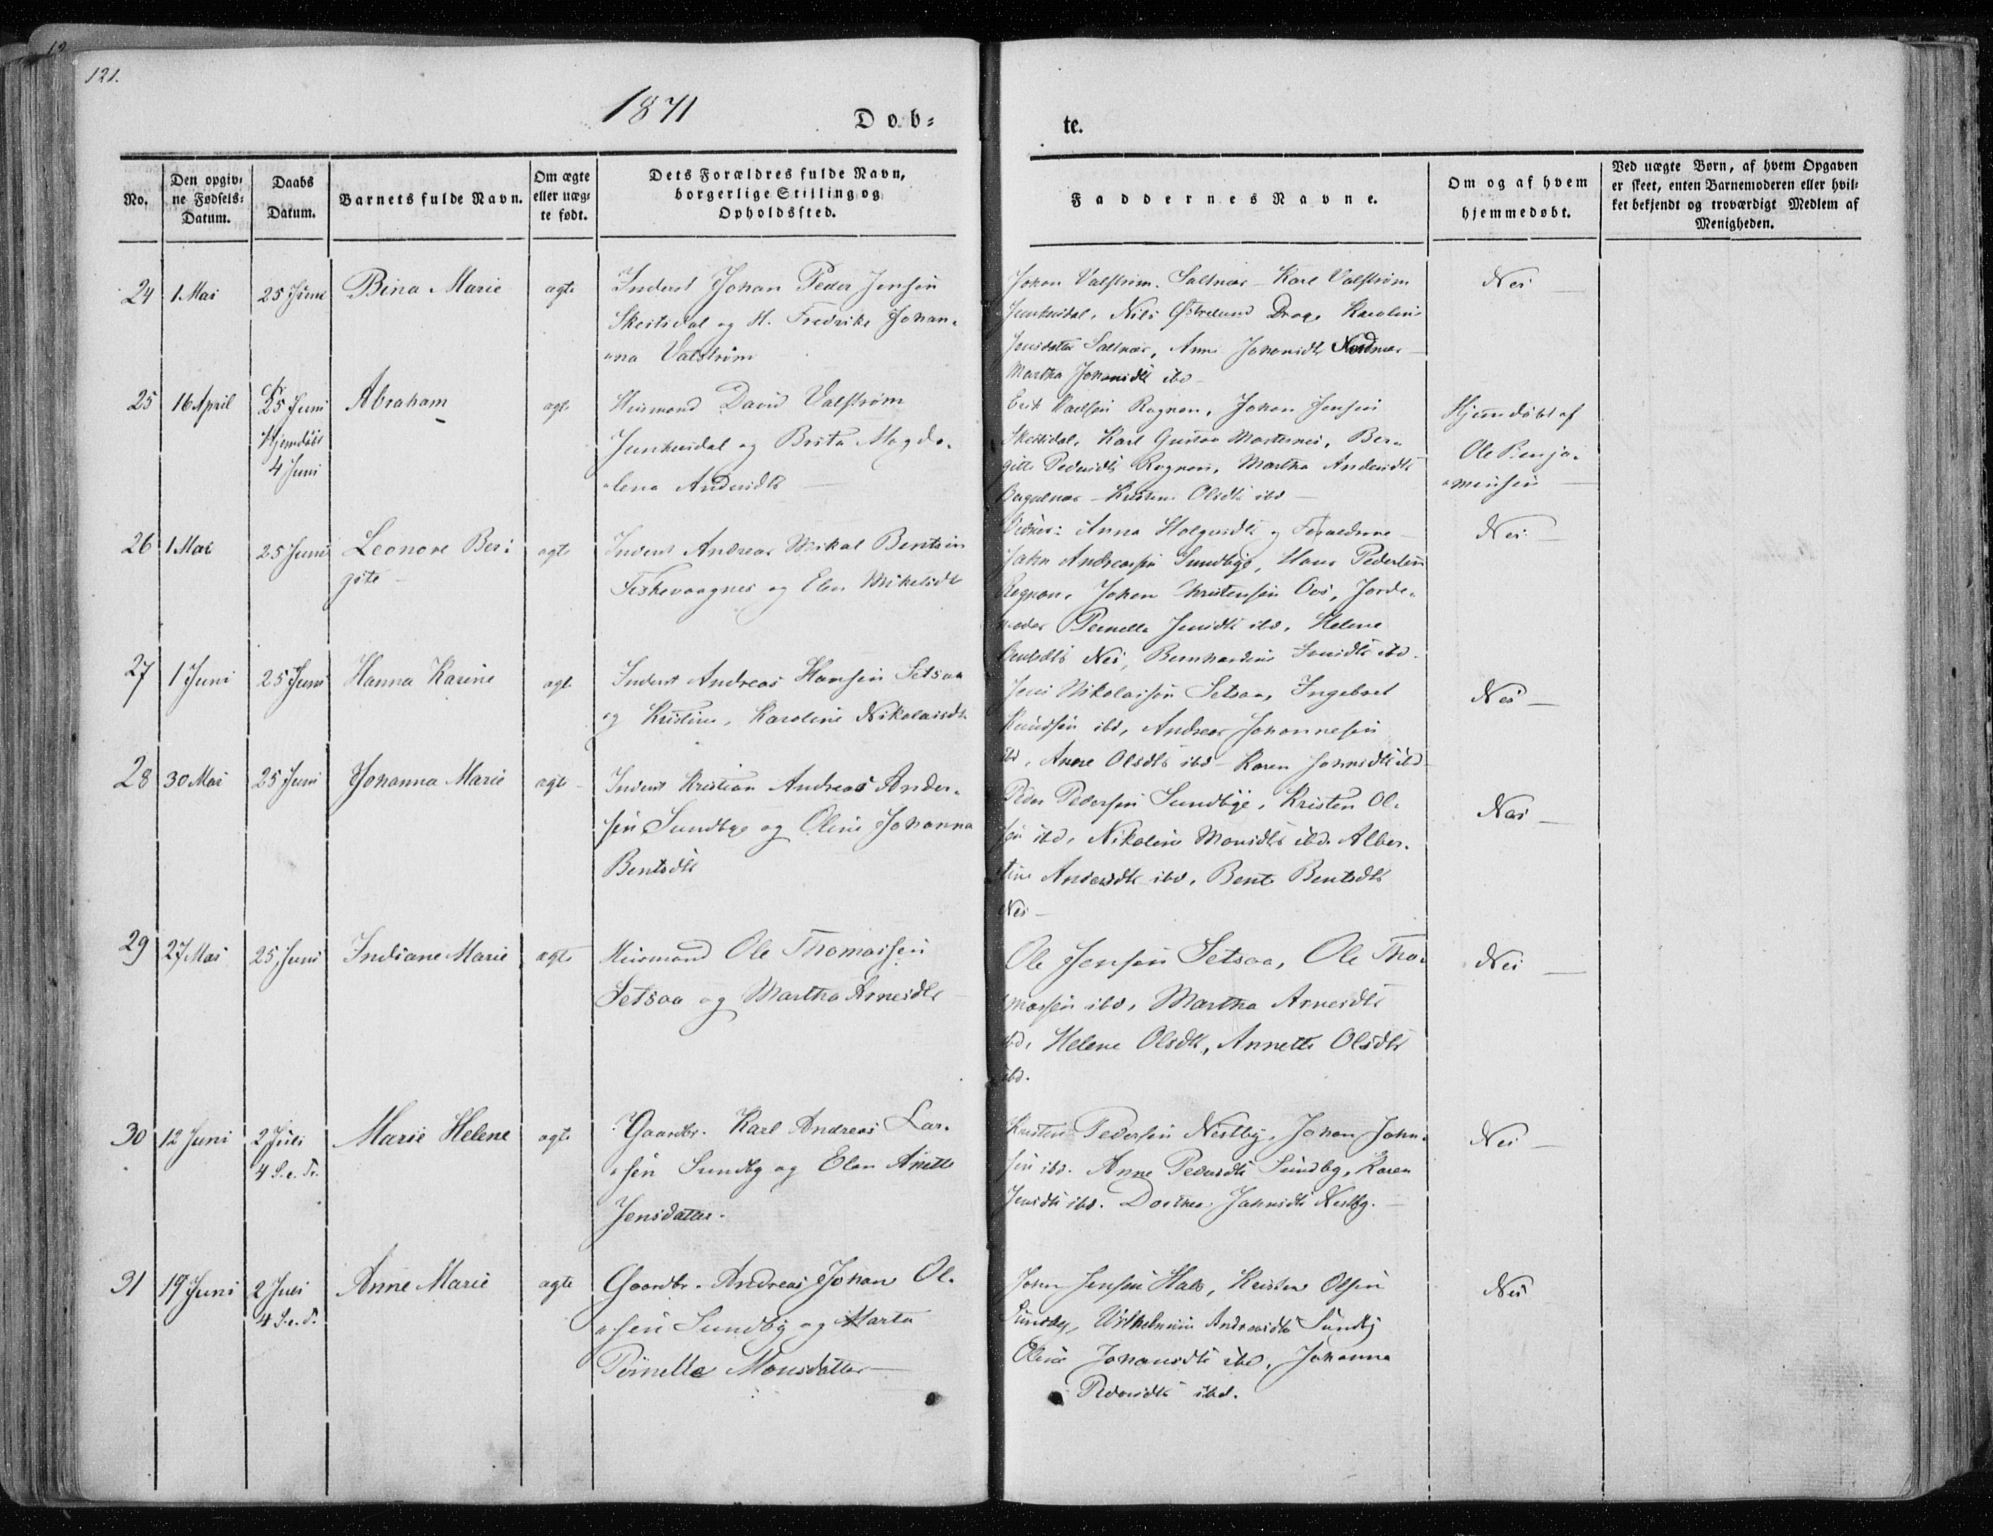 121.
1871
Dob-
te.
No.
Den opgiv-
ne Fødsels-
Datum.
Daabs
Datum.
Barnets fulde Navn.
Om ægte
eller uæg-
te født.
Dets Forældres fulde Navn,
borgerlige Stilling og
Opholdssted.
Faddernes Navne.
Om og af hvem
hjemmedøbt.
Ved uægte Børn, af hvem Opgaven
er skeet, enten Barnemoderen eller hvil-
ket bekjendt og troværdigt Medlem af
Menigheden.
24 1 Mai 25 Juni Bina Marie ægte
Inderst Johan Peder Jensen
og H. Fredrike Johan-
na Valstrøm
Johan Valstrøm Saltnæs - Karl Valstrøm
Junkersdal, Nils Østrelund Karoline
Jensdatter Saltnæs, Anne Johansdtr
Martha Johansdtr ibd -
Nei -
25 16 April 25 Juni
Hjemdøbt
4 Juni
Abraham ægte
Huusmand David Valstrøm
Junkersdal og Brita Magda-
lena Andersdtr -
Erik Karlsen Rognan, Johan Jensen
Karl Gustav Ber-
gitte Pedersdtr Rognan, Martha Andersdtr
Olsdtr ibd -
Hjemdøbt af
Ole Benja-
minsen -
26 1 Mai 25 Juni Leonore Ber-
gite -
ægte
Inderst Andreas Mikal Bentsen
Fiskevaagnes og Elen Mikelsdtr
Anna Holgersdtr og Forældrene -
John Andreassen Sundbye, Hans Pedersen
Rognan, Johan Christensen Jorde-
moder Pernelle Jensdtr ibd, Helene
Bentsdtr Nes, Bernhardine Jensdtr ibd.
Nei -
27 1 Juni 25 Juni Hanna Karine ægte
Inderst Andreas Hansen Setsaa
og Kristine Karoline Nikolaisdtr
Jens Nikolaisen Setsaa, Ingebret
Knudsen ibd, Andreas Johannesen
ibd, Anne Olsdtr ibd - Karen Johnsdtr ibd
Nei -
28 30 Mai 25 Juni Johanna Marie ægte -
Inderst Kristian Andreas Ander-
sen Sundbye og Oline Johanna
Bentsdtr
Peder Pedersen Sundbye, Kristen Ol-
sen ibd, Nikoline Monsdtr ibd. Alber-
tine Andersdtr ibd, Bent Bentsdtr
Nes -
Nei -
29 27 Mai 25 Juni Indiane Marie ægte
Huusmand Ole Thomassen
Setsaa og Martha Arnesdtr
Ole Jensen Setsaa, Ole Tho-
massen ibd, Martha Arnesdtr
ibd, Helene Olsdtr, Annette Olsdtr
ibd.
Nei -
30 12 Juni 2 Juli
4 S. e. Tr.
Marie Helene ægte
Gaardbr. Karl Andreas Lar-
sen Sundby og Elen Anette
Jensdatter.
Kristen Pedersen Nestby, Johan John-
sen ibd. Anne Pedersdtr Sundby, Karen
Jensdtr ibd. Dorthea Johnsdtr Nestby. -
Nei -
31 19 Juni 2 Juli
4 S. e. Tr.
Anne Marie ægte
Gaardbr. Andreas Johan Ol-
sen Sundby og Marta
Pernelle Monsdatter -
John Jensen Hals, Kristen Olsen
Sundby, Wilhelmine Andreasdtr Sundby
Oline Johansdtr ibd, Johanna
Pedersdtr ibd.
Nei